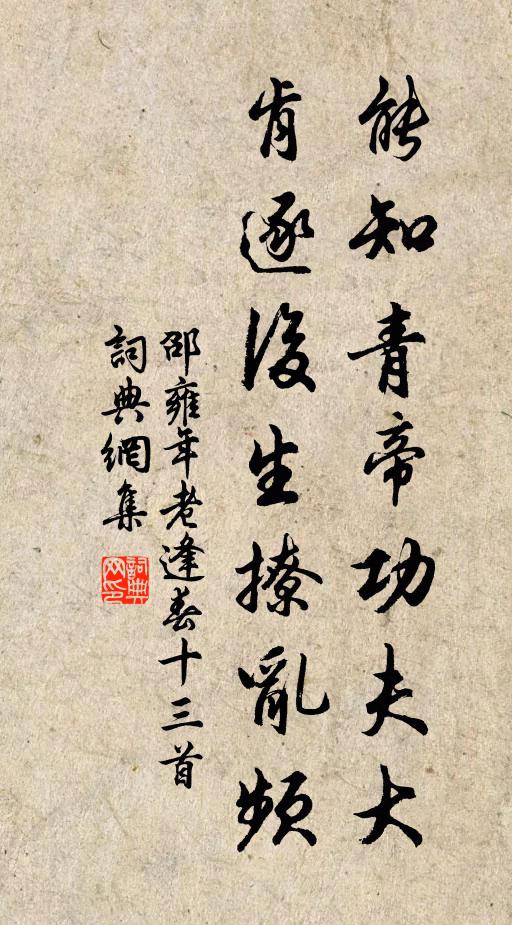 能知青帝功夫大
肯逐後生撩亂頻
邵雍年老逢春十三首
詞典網集
詞典网印